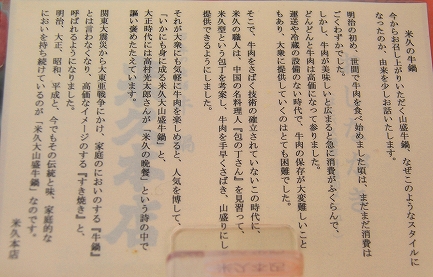 米久の牛鍋
今からお召し上がりいただく山盛牛鍋、なぜこのようなスタイルに
なったのか、由来を少しお話いたします。
明治の初め、世間で牛肉を食べ始めました頃は、まだまだ消費は
ごくわずかでした。
しかし、牛肉が美味しいと広まると急に消費がふくらんで、
どんどん牛肉は高価になって参りました。
運送や冷蔵の設備のない時代で、牛肉の保存が大変難しいこと
もあり、大衆に提供していくのはとても困難でした。
そこで、牛肉をさばく技術の確立されていないこの時代に、
米久の職人は、中国の名料理人『包の丁さん』を見習って、
米久型という包丁を考案し、牛肉を手早くさばき、山盛りにし
提供できるようにしました。
それが大衆にも気軽に牛肉を楽しめると、人気を博して、
「いかにも身に成る米久大山盛牛鍋」と、
大正時代には高村光太郎さんが「米久の晩餐」という詩の中で
謳い褒めたたえています。
関東大震災から大東亜戦争にかけ、家庭のにおいのする『牛鍋』
とは言わなくなり、高価なイメージのする『すき焼き』と、
呼ばれるようになりました。
明治、大正、昭和、平成と、今でもその伝統と味、家庭的な
においを持ち続けているのが「米久大山盛牛鍋」なのです。
米久本店